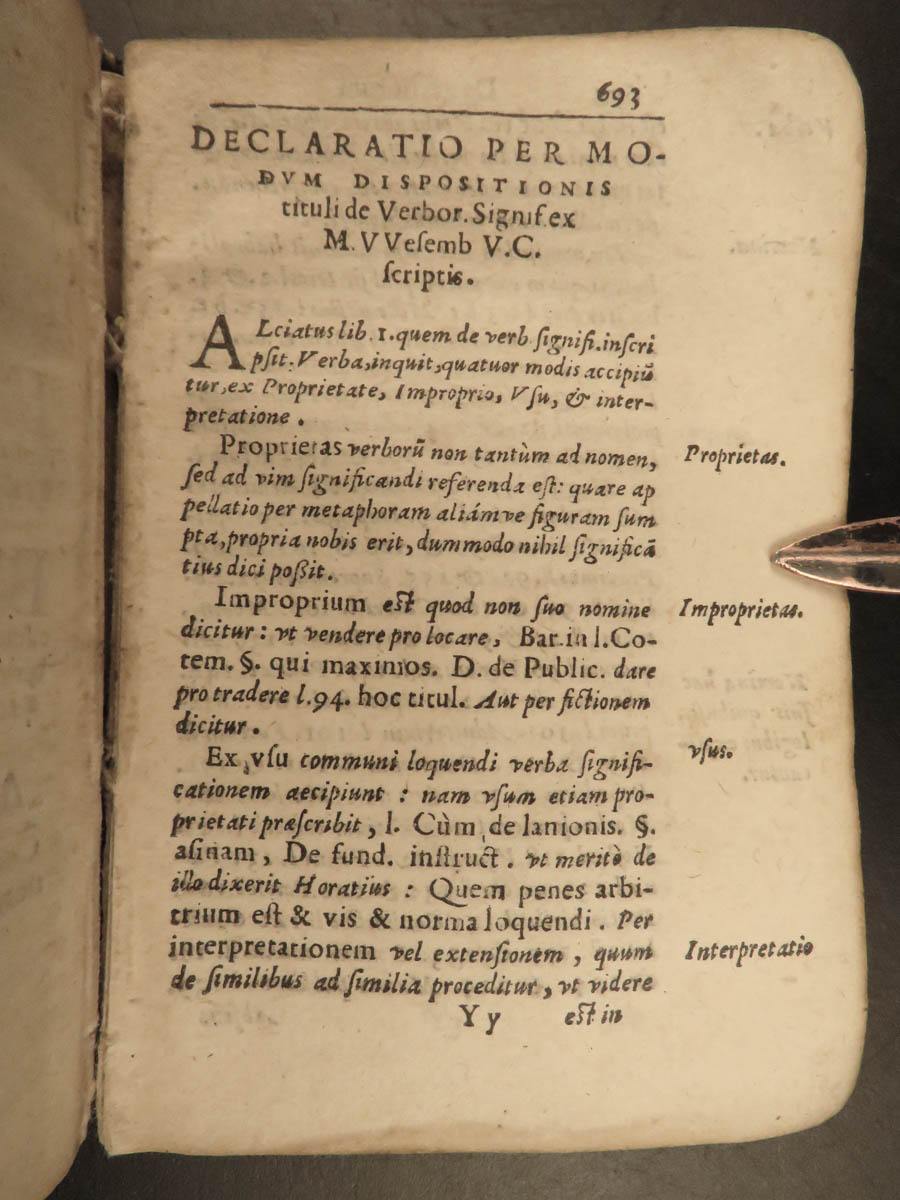 693
DECLARATIO PER MO-
DVM DISPOSITIONIS
tituli de Verbor. Signif. ex
M. VVesemb V.C.
scriptis.
ALciatus lib. 1. quem de verb signifi. inscri
psit: Verba, inquit, quatuor modis accipiū
tur, ex Proprietate, Improprio, Vsu, & inter-
pretatione.
Proprietas verborū non tantùm ad nomen,
Proprietas.
sed ad vim significandi referenda est: quare ap
pellatio per metaphoram aliámve figuram sum
pta, propria nobis erit, dummodo nihil significā
tius dici possit.
Improprium est quod non suo nomine
Improprietas.
dicitur: vt vendere pro locare, Bar. in l. Co-
tem. §. qui maximos. D. de Public. dare
pro tradere l. 94. hoc titul. Aut per fictionem
dicitur.
Ex vsu communi loquendi verba signifi-
vsus.
cationem aecipiunt: nam vsum etiam pro-
prietati præscribit, l. Cùm de lanionis. §.
asinam, De fund. instruct. vt meritò de
illo dixerit Horatius: Quem penes arbi-
trium est & vis & norma loquendi. Per
interpretationem vel extensionem, quum
Interpretatio
de similibus ad similia proceditur, vt videre
Y y est in